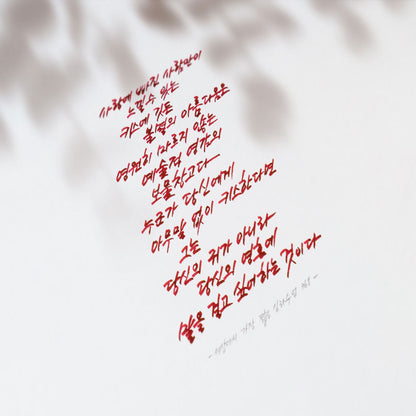 사랑에 빠진 사람만이
느낄 수 있는
키스에 깃든
불멸의 아름다움은
영원히 마르지 않는
예술적 영감의
보물창고다
누군가 당신에게
아무말 없이 키스한다면
그는
당신의 귀가 아니라
당신의 영혼에
말을 걸고 싶어하는 것이다
- 세상에서 가장